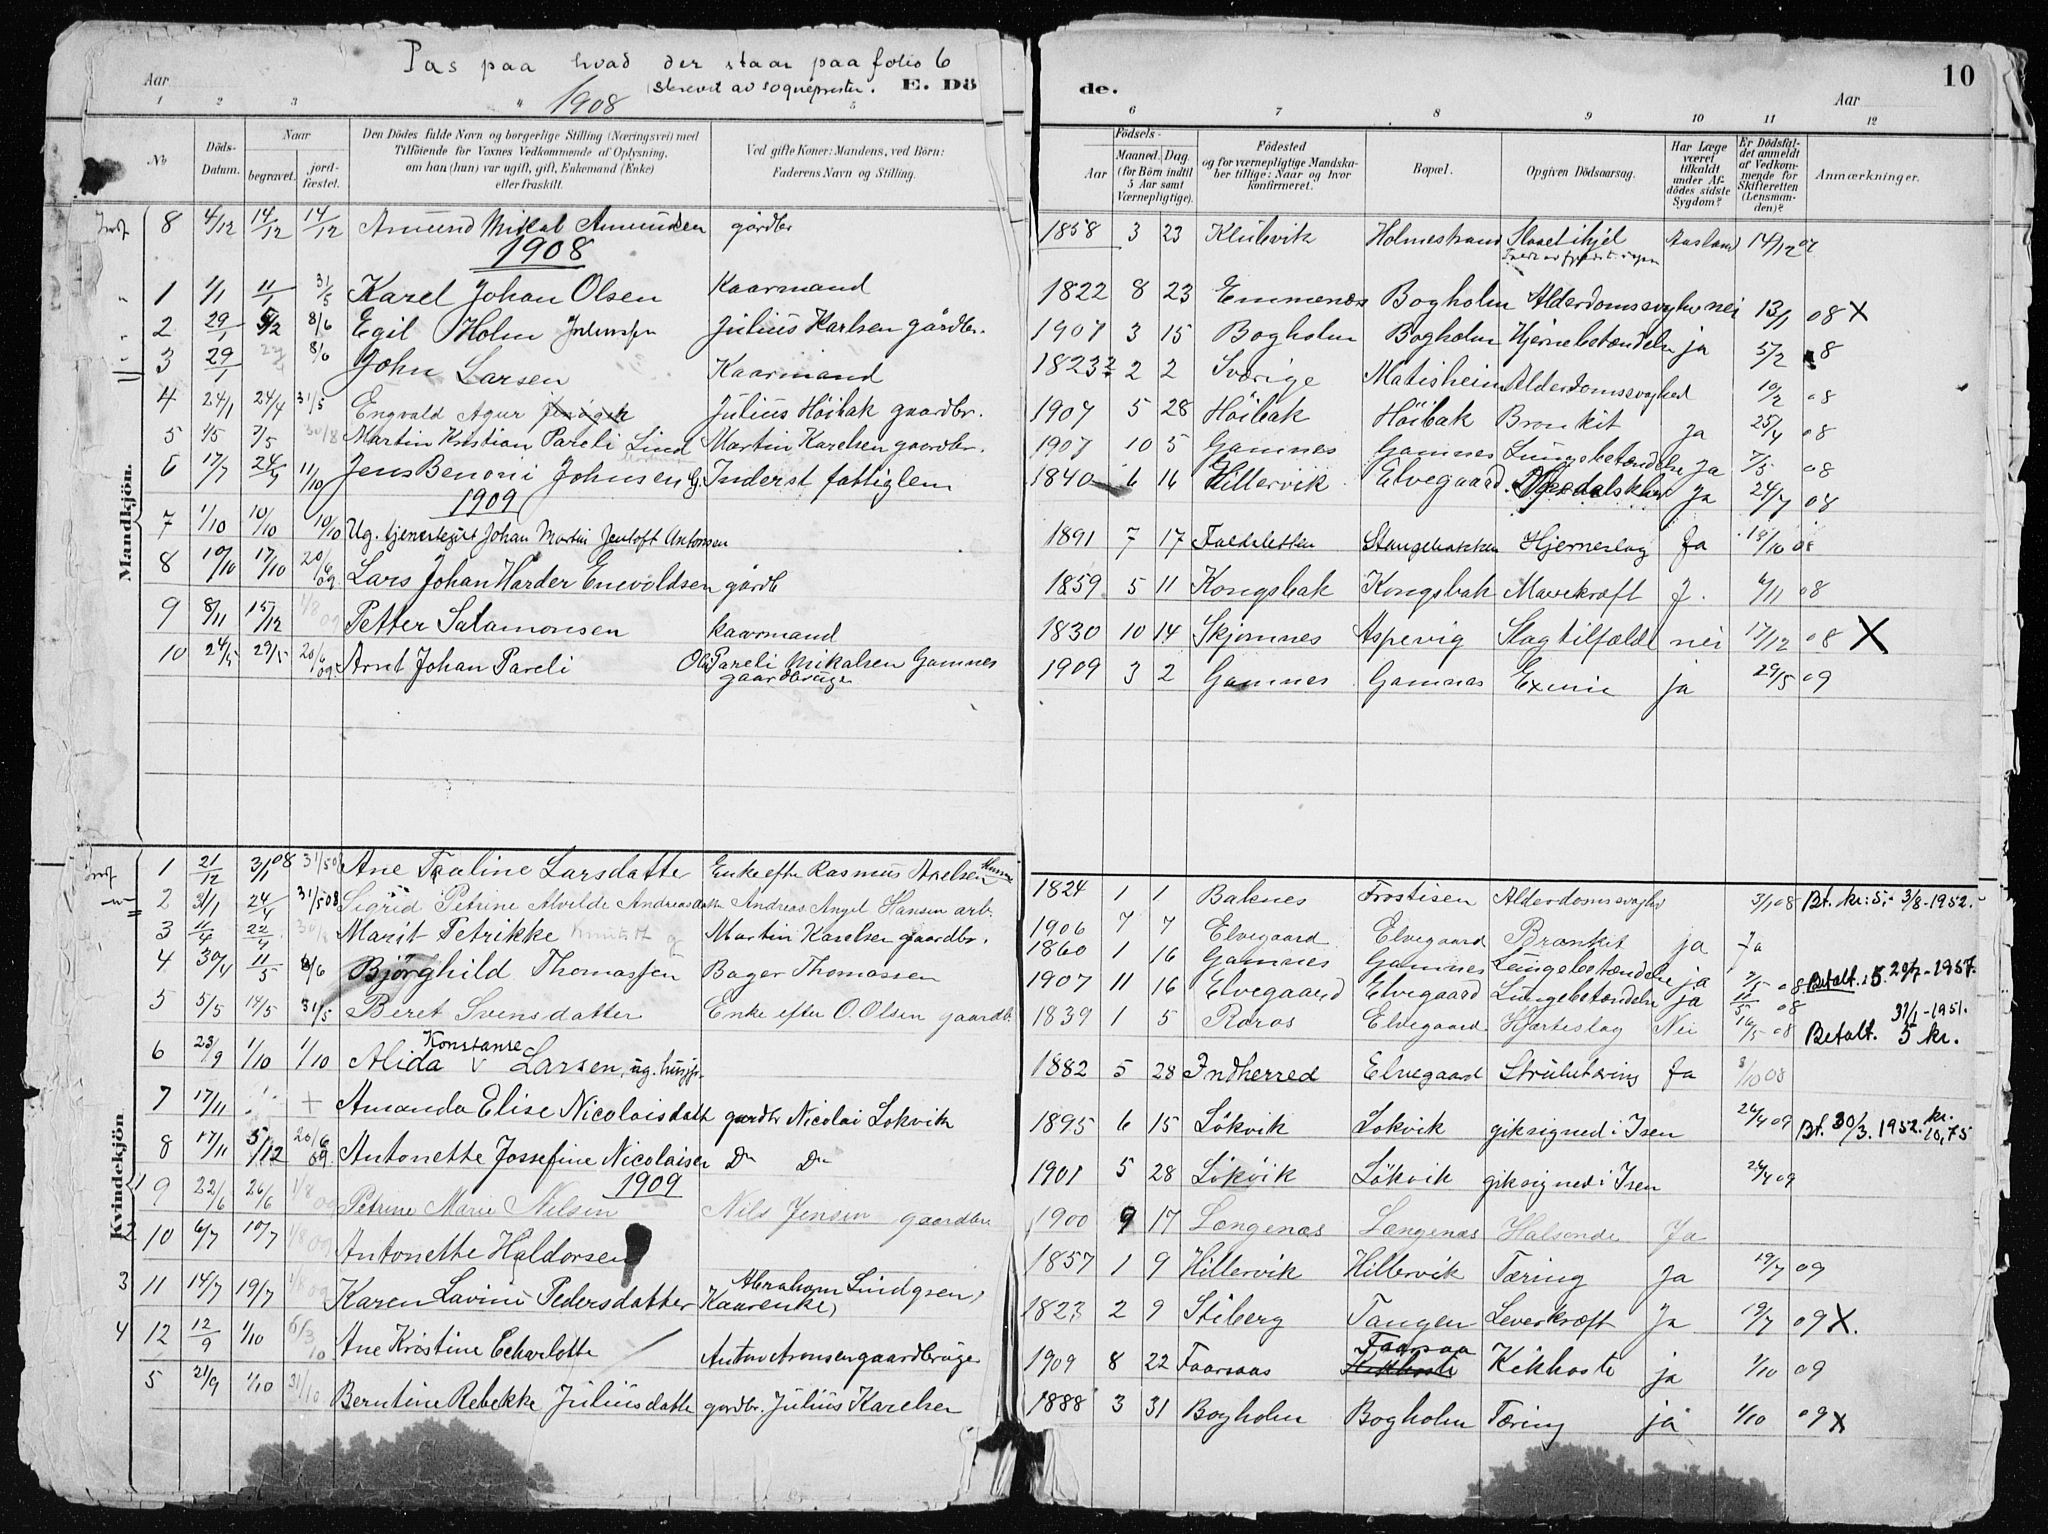 Pas paa hvad der staar paa folio 6
skrevet av sogneprester.
E. Dö
de.
10
Aar
1908
Aar
1 2 3 4 5 6 7 8 9 10 11 12
No
Döds-Datum.
Naar
begravet.
jord-fæstet.
Den Dödes fulde Navn og borgerlige Stilling (Næringsvei) med
Tilföiende for Voxnes Vedkommende af Oplysning,
om han (hun) var ugift, gift, Enkemand (Enke)
eller fraskilt.
Ved gifte Koner: Mandens, ved Börn:
Faderens Navn og Stilling.
Födsels-
Aar
Maaned. Dag
(for Börn indtil
5 Aar samt
Værnepligtige).
Födested
og for værnepligtige Mandska-
ber tillige: Naar og hvor
konfirmeret.
Bopæl.
Opgiven Dödsaarsag.
Har Læge
været
tilkaldt
under Af-
dödes sidste
Sygdom?
Er Dödsfal-
det anmeldt
af Vedkom-
mende for
Skifteretten
(Lensman-
den)?
Anmærkninger.
Mandkjön.
8 4/12 14/12 14/12 Amund Mikal Amundsen gårdbr 1858 3 23 Klubvik Holmestrand Slaaet ihjel 14/12 07
1908
1 1/1 11/1 3/5 Karel Johan Olsen Kaarmand 1822 8 23 Emmenæs Bogholm Alderdomssvaghed nei 13/1 08 X
2 29/1 5/2 8/6 Egil Holm Juliussen Julius Karlsen gårdbr. 1907 3 15 Bogholm Bogholm Hjernebetændelse ja 5/2 08
3 29/1 8/6 John Larsen Kaarmand 1823? 2 2 Sverige Matisheim Alderdomssvaghed 10/2 08
4 24/1 24/4 31/5 Engvald Agur Julius Höibak gaardbr. 1907 5 28 Höibak Höibak Bronkit ja 25/4 08
5 1/5 7/5 30/8 Martin Kristian Pareli Lind Martin Karelsen gaardbr. 1907 10 5 Gamnes Gamnes Lungebetændelse ja 7/5 08
6 17/7 24/7 11/10 Jens Benoni Johnsen G. Inderst fattiglem 1840 6 16 Hillervik Elvegaard Ja 24/7 08
1909
7 1/10 10/10 10/10 Ug. tjenestegut Johan Martin Jentoft Antonsen 1891 7 17 Faldsletten Stangebakken Hjerneslag Ja 18/10 08
8 10/10 17/10 20/6 09. Lars Johan Harder Enevoldsen gårdb 1859 5 11 Kongsbak Kongsbak Mavekræft J. 6/11 08
9 8/11 15/12 1/8 09 Petter Salamonsen kaarmand 1830 10 14 Skjomnes Aspevig Slagtilfælde nei 17/12 08 X
10 24/5 29/5 20/6 09. Arnt Johan Pareli Ole Pareli Mikalsen Gamnes gaardbruger 1909 3 2 Gamnes Gamnes Exemie ja 29/5 09
Kvindekjön
1 21/12 3/1 08 31/5 08 Ane Pauline Larsdatte Enke efter Rasmus Axelsen 1824 1 1 Baknes Frostisen Alderdomssvaghed 3/1 08 Bt. kr: 5,- 3/8-1952.
2 31/1 24/4 31/5 08 Sigrid Petrine Alvilde Andreasdatter Andreas Angel Hansen arb. 1906 7 7 Elvegaard Elvegaard Bronkit ja Ja
3 11/4 22/4 30/8 Marit Petrikke Martin Karelsen gaardbr. 1860 1 16 Gamnes Gamnes Lungebetændelse ja 7/5 08 Betalt: 5. 20/7-1957.
4 30/4 11/5 8/6 Bjørghild Thomassen Bager Thomassen 1907 11 16 Elvegaard Elvegaard Lungebetændelse ja 11/5 08
5 5/5 14/5 31/5 Beret Svensdatter Enke efter O. Olsen gaardb. 1839 1 5 Röros Elvegaard Hjerteslag Nei 16/5 08 Betalt. 31/1-1951. 5 kr.
6 23/9 1/10 1/10 Alida Konstanse Larsen, ug. huspr. 1882 5 28 Indherred Elvegaard Strubetæring Ja 3/10 08
7 17/11 + Amanda Elise Nicolaisdatt gardbr Nicolai Lökvik 1895 6 15 Lökvik Lökvik gik signed i Isen 26/4 09 Bt. 30/3. 1952. kr. 10,75
8 17/11 5/12 20/6 09. Antonette Jossefine Nicolaisen Do Do 1901 5 28 Lökvik Lökvik gik signed i Isen 26/4 09
1909
1 9 22/6 26/6 1/8 09 Petrine Marie Nilsen Nils Jensen gaardbr 1900 9 17 Længenæs Længenæs Halsonde Ja
2 10 6/7 10/7 1/8 09 Antonette Haldorsen 1857 1 9 Hillervik Hillervik Tæring Ja 19/7 09
3 11 14/7 19/7 1/8 09 Karen Lavine Pedersdatter Abraham Lindgren, Kaarenke, 1823 2 9 Stiberg Tangen Leverkræft Ja 19/7 09 X.
4 12 12/9 1/10 6/3 10 Ane Kristine Echarlotte Anton Aronsen gaardbruger 1909 8 22 Faarsaas Faarsaa Kikhoste ja 1/10 09
5 21/9 1/10 31/10 Berntine Rebekke Juliusdatte gardbr. Julius Karelsen 1888 3 31 Bogholm Bogholm Tæring ja 1/10 09 X